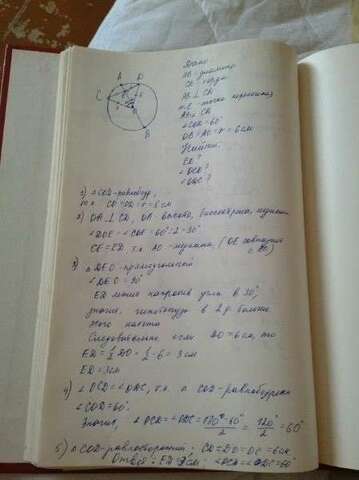 A D
C
B
Дано
AB - диаметр
CD - хорда
AB ⊥ CD
E - точка пересечения
AB и CD
∠COD = 60°
OB = AO = r = 6 см
Найти
ED ?
∠OCD ?
∠ODC ?
1) △COD - равнобедр,
т.к. CO = OD = r = 6 см
2) OA ⊥ CD, OA высота, биссектриса, медиана
∠DOE = ∠COE = 60°:2 = 30°
CE = ED, т.к. AO - медиана, (OE совпадает
с AO)
3) △DEO - прямоугольный
∠DEO = 90°
ED лежит напротив угла в 30°,
значит, гипотенуза в 2 р больше
этого катета
Следовательно если DO = 6 см, то
ED = ½ DO = ½ · 6 = 3 см
ED = 3 см
4) ∠OCD = ∠ODC, т.к. △COD - равнобедрен
∠COD = 60°
Значит, ∠OCD = ∠ODC = (180° - 60°)/2 = 120°/2 = 60°
5) △COD - равносторонний: CD = DO = OC = 6 см
Ответ: ED = 3 см; ∠OCD = ∠ODC = 60°